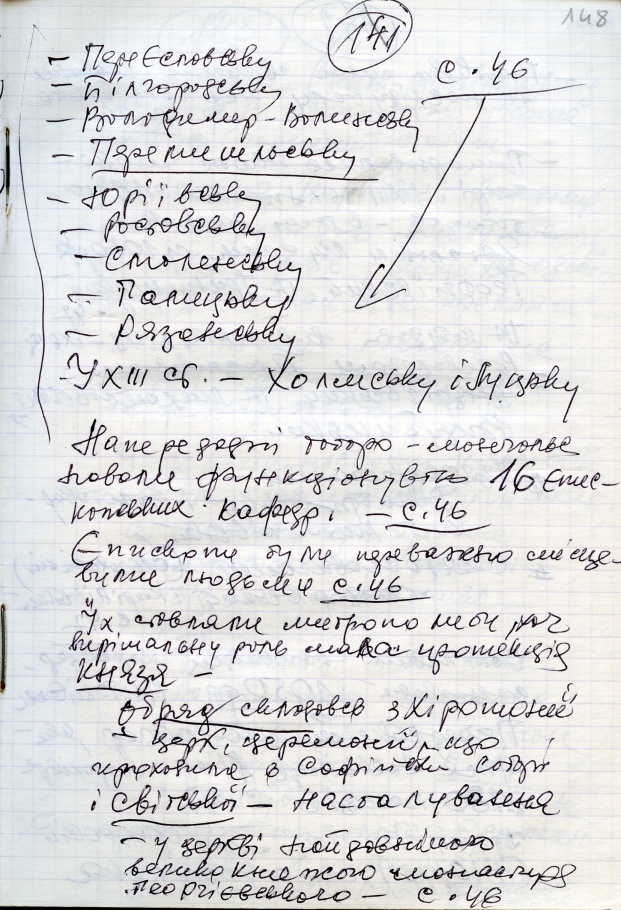 148
141
с. 46
– Переєславську
– Білгородську
– Володимир-Волинську
– Перемишльську
– Юріївську
– Ростовську
– Смоленську
– Галицьку
– Рязанську
– У XIII ст. – Холмську і Луцьку
Напередодні татаро-монгольс
навали функціонувало 16 єпис-
копських кафедр. – с. 46
Єпископи були переважно місце-
вими людьми с. 46
Їх ставили митрополити, хоч
вирішальну роль мала протекція
князя –
Обряд складався з Хіротонії
– церк, церемонії, що
проходила в Софійськ соборі
і світської – настолування
– у церкві найдавнішого
велико княжого монастиря
Георгієвського – с. 46